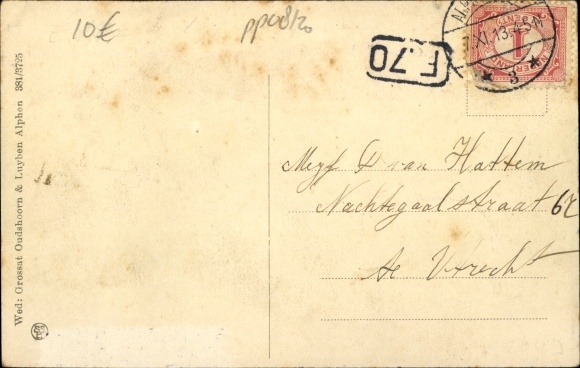 10€
pp08/20
F.70
AL
XI.13.4-5N
3
Wed: Grossat Oudshoorn & Luyben Alphen 381/3725
Mejf D van Hattem
Nachtegaalstraat 67
te Utrecht